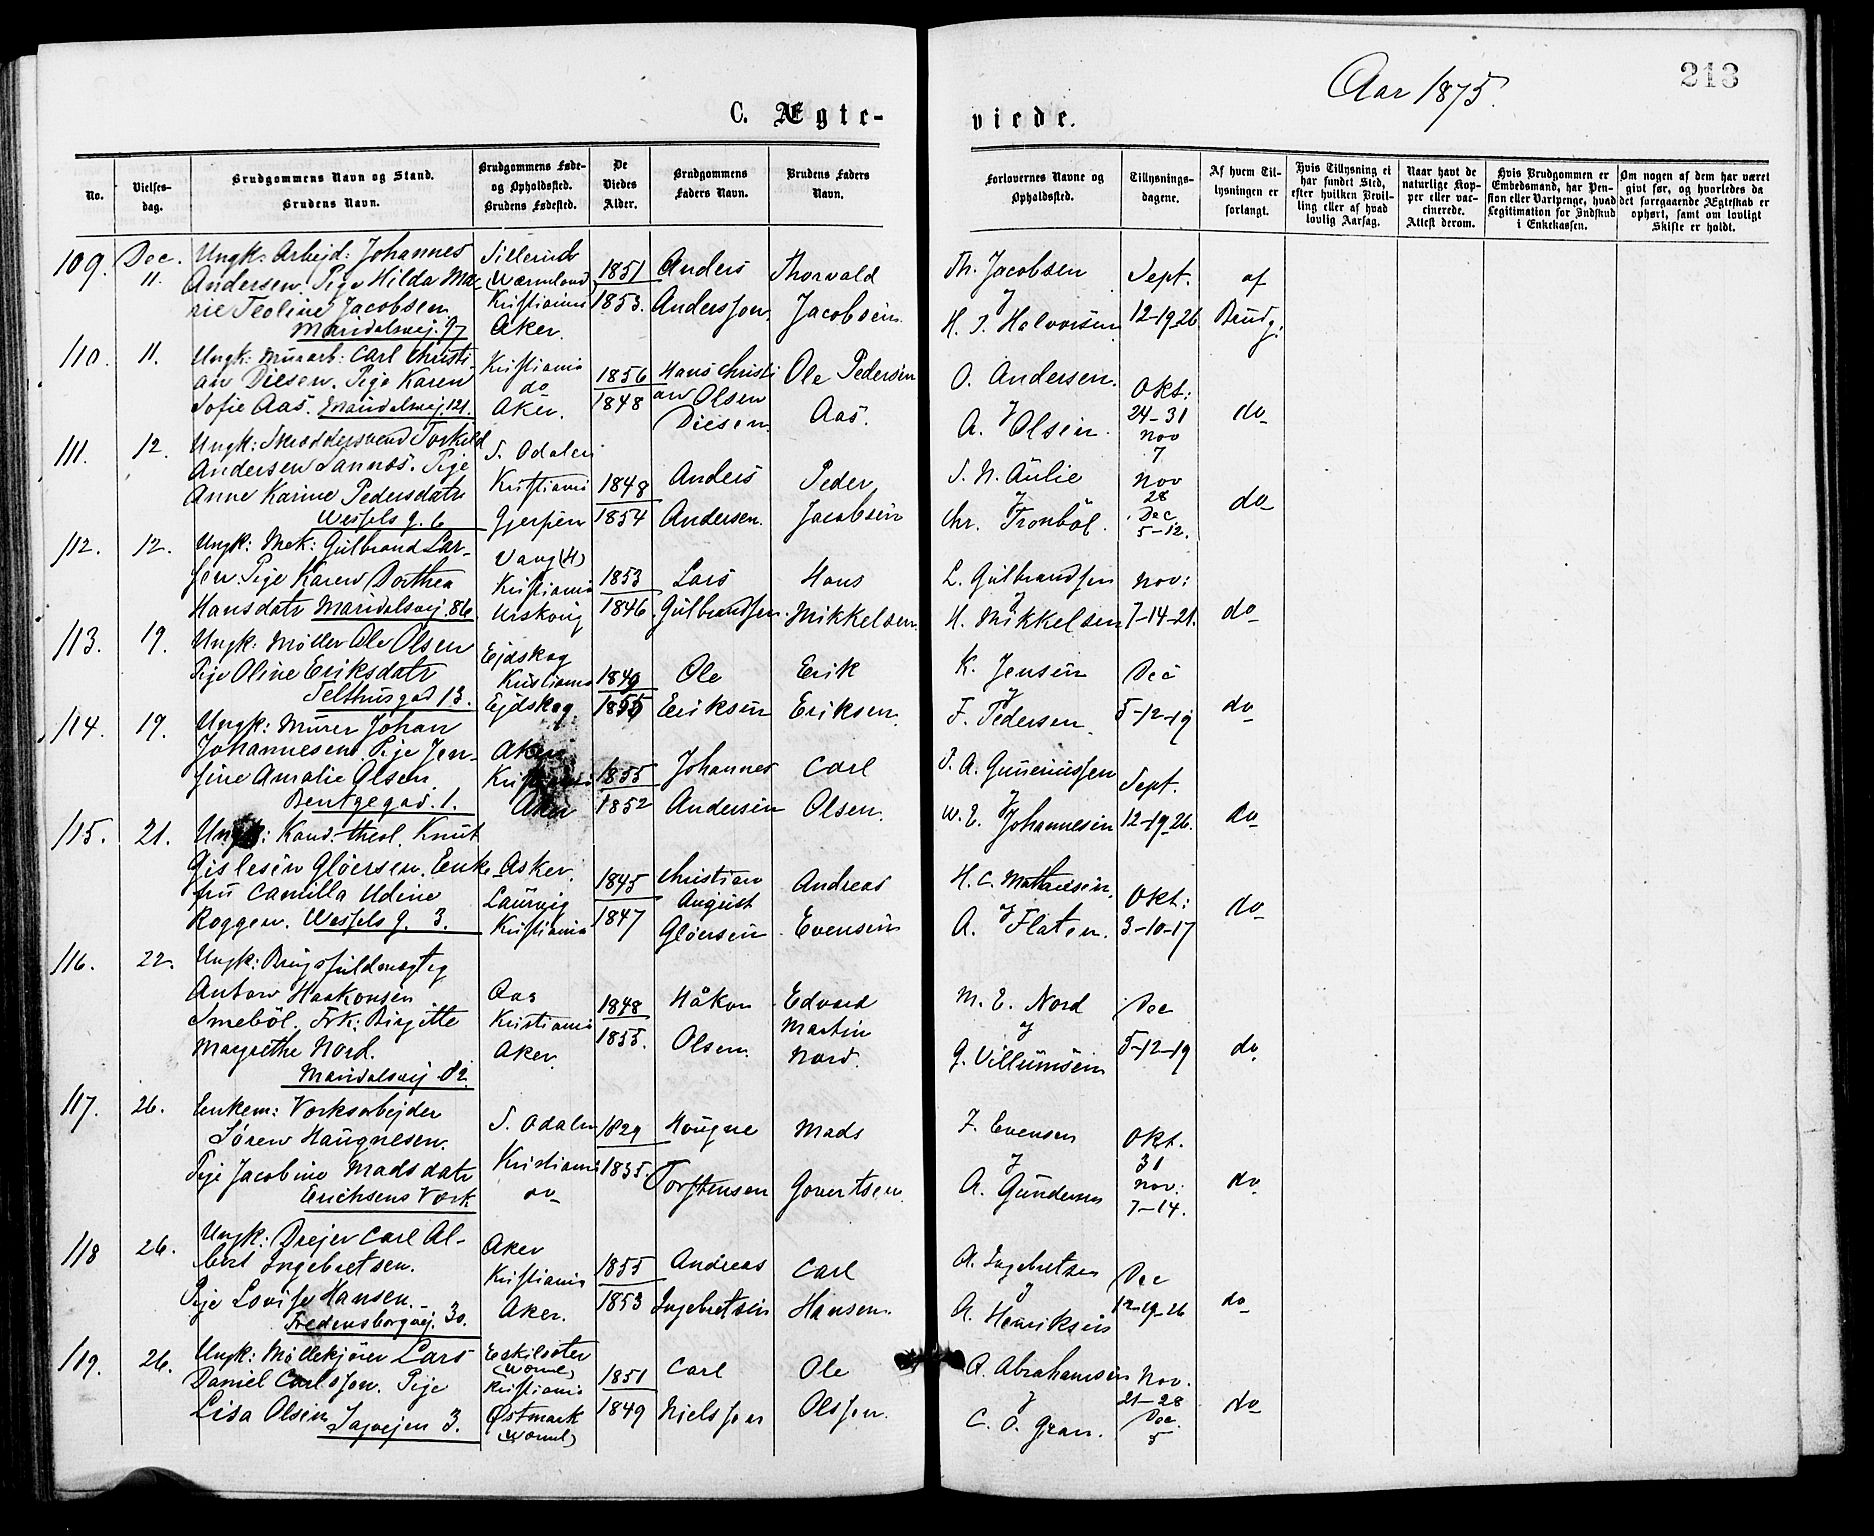 Aar 1875.
213
C. Ægte-
viede.
No.
Vielses-
dag.
Brudgommens Navn og Stand.
Brudens Navn.
Brudgommens Føde-
og Opholdssted.
Brudens Fødested.
De
Viedes
Alder.
Brudgommens
Faders Navn.
Brudens Faders
Navn.
Forlovernes Navne og
Opholdssted.
Tillysnings-
dagene.
Af hvem Til-
lysningen er
forlangt.
Hvis Tillysning ei
har fundet Sted,
efter hvilken Bevil-
ling eller af hvad
lovlig Aarsag.
Naar havt de
naturlige Kop-
per eller vac-
cinerede.
Attest derom.
Hvis Brudgommen er
Embedsmand, har Pen-
sion eller Vartpenge, hvad
Legitimation for Indskud
i Enkekassen.
Om nogen af dem har været
givt før, og hvorledes da
det foregaaende Ægteskab er
ophørt, samt om lovligt
Skifte er holdt.
109.
Dec.
11.
Ungk: Arbejd: Johannes
Andersen. Pige Hilda Ma-
rie Teoline Jacobsen
Maridalsvej. 97
Sillerud
(Wærmland)
Kristiania
Aker.
1851
1853.
Anders
Anderssen.
Thorvald
Jacobsen.
Th. Jacobsen
&
H. J. Halvorsen
Sept.
12-19-26
af
Brudg.
110.
11.
Ungk: Murarb: Carl Christi-
an Diesen. Pige Karen
Sofie Aas. Maridalsvej. 121.
Kristiania
do
Aker.
1856
1848
Hans Christi
an Olsen
Diesen.
Ole Pedersen
Aas.
O. Andersen.
&
A. Olsen.
Okt:
24-31
Nov
7
do
111.
12.
Ungk: Skræddersvend Torkild
Andersen Sannæs. Pige
Anne Karine Pedersdatr
Wessels g. 6
S. Odalen
Kristiania
Gjerpen
1848
1854
Anders
Andersen.
Peder
Jacobsen
S. N. Aulie
&
Chr. Tronböl.
Nov
28
Dec
5-12.
do
112.
12.
Ungk: Mek: Gulbrand Lar-
sen. Pige Karen Dorthea
Hansdatr Maridalsvej. 86.
Vang (H)
Kristiania
Urskoug
1853
1846.
Lars
Gulbrandsen.
Hans
Mikkelsen.
L. Gulbrandsen
&
H. Mikkelsen
Nov:
7-14-21.
do
113.
19.
Ungk: Møller Ole Olsen
Pige Oline Eriksdatr
Telthusgad 13.
Ejdskog
Kristiania
Ejdskog
1849
1855
Ole
Eriksen
Erik
Eriksen.
K. Jensen
&
F. Pedersen.
Dec
5-12-19
do
114.
19.
Ungk: Murer Johan
Johannesen. Pige Jen-
sine Amalie Olsen.
Bentsegad. 1.
Aker
Kristiania
Aker
1855
1852
Johannes
Andersen
Carl
Olsen.
P. A. Guneriussen
&
W. E. Johannesen
Sept.
12-19-26.
do
115.
21.
Ungk: Kand. theol. Knut
Gislesen Gløersen. Enke-
fru Camilla Udine
Roggen. Wessels g. 3.
Asker.
Laurvig
Kristiania
1845
1847
Christian
August
Gløersen
Andreas
Evensen
H. C. Mathiesen.
&
A. Flaten.
Okt:
3-10-17
do
116.
22.
Ungk: Brugsfuldmægtig
Anton Haakonsen
Smeböl. Frk: Birgitte
Margrethe Nord.
Maridalsvej 82.
Aas
Kristiania
Aker.
1848
1855.
Håkon
Olsen.
Edvard
Martin
Nord.
M. E. Nord
&
G. Villumsen
Dec
5-12-19
do
117.
26.
Enkem: Værksarbejder
Søren Haugnesen.
Pige Jacobine Madsdatr
Erichsens Værk
S. Odalen
Kristiania
do
1829
1835.
Hougne
Torstensen
Mads
Govertsen.
J. Evensen
&
A. Gundersen
Okt.
31
Nov:
7-14.
do
118
26.
Ungk: Drejer Carl Al-
bert Ingebretsen.
Pige Lovise Hansen.
Fredensborgvej. 30.
Aker
Kristiania
Aker.
1855
1853
Andreas
Ingebretsen
Carl
Hansen.
A. Ingebretsen
&
A. Henriksen
Dec
12-19-26
do
119.
26.
Ungk: Møllekjører Lars
Daniel Carlsson. Pige
Lisa Olsen Sagvejen 3.
Eskilsäter
(Wærml)
Kristiania
Østmark
(Wærml)
1851
1849
Carl
Nielssen
Ole
Olssen.
A. Abrahamsen
&
C. O. Gran.
Nov.
21-28
Dec.
5
do